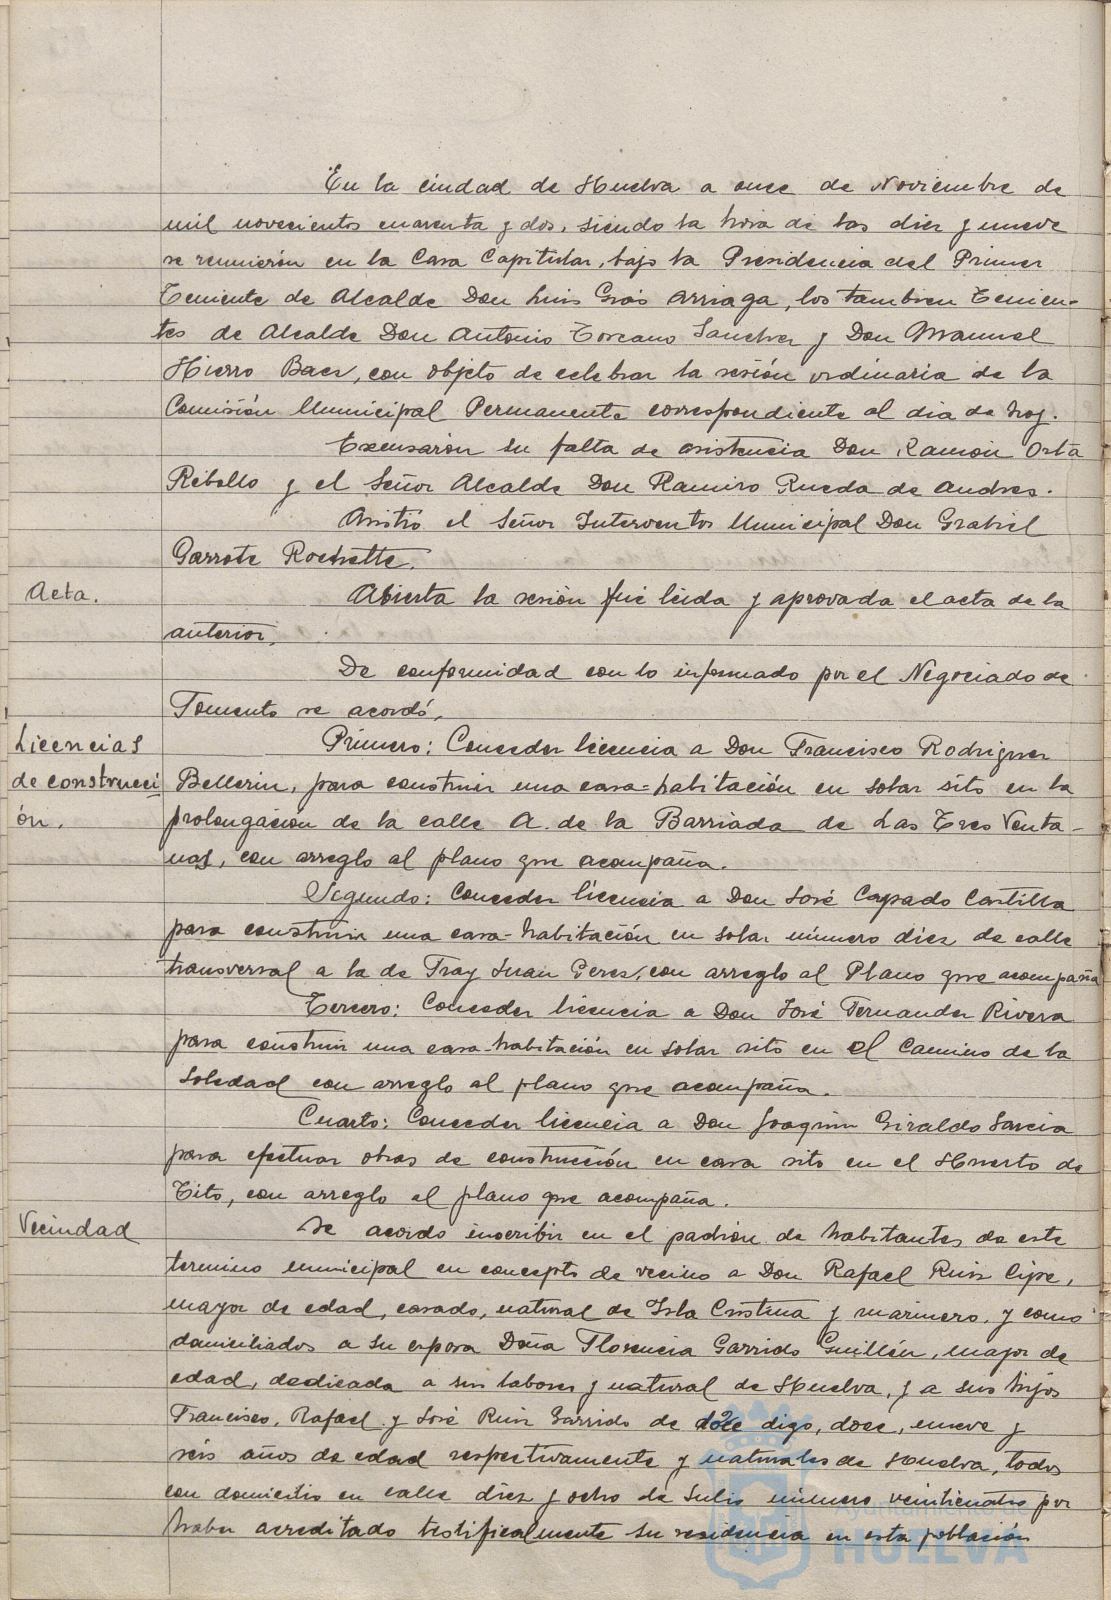 En la ciudad de Huelva a once de Noviembre de
mil novecientos cuarenta y dos, siendo la hora de las diez y nueve
se reunieron en la Casa Capitular, bajo la Presidencia del Primer
Teniente de Alcalde Don Luis Grás Arriaga, los tambien Tenien-
tes de Alcalde Don Antonio Toscano Sanchez y Don Manuel
Hierro Baez, con objeto de celebrar la sesión ordinaria de la
Comisión Municipal Permanente correspondiente al dia de hoy.
Excusaron su falta de asistencia Don Ramon Orta
Rebollo y el Señor Alcalde Don Ramiro Rueda de Andres.
Asistió el Señor Interventor Municipal Don Grabiel
Garrote Rochette.
Acta.
Abierta la sesión fue leida y aprovada el acta de la
anterior.
De conformidad con lo informado por el Negociado de
Fomento se acordó,
Licencias
de construcci
ón.
Primero: Conceder licencia a Don Francisco Rodriguez
Bellerin, para construir una casa-habitación en solar sito en la
prolongación de la calle A. de la Barriada de Las Tres Venta-
nas, con arreglo al plano que acompaña.
Segundo: Conceder licencia a Don José Capado Castilla
para construir una casa-habitación en solar número diez de calle
transversal a la de Fray Juan Perez, con arreglo al Plano que acompaña
Tercero: Conceder licencia a Don José Fernandez Rivera
para construir una casa-habitación en solar sito en el Camino de la
Soledad con arreglo al plano que acompaña.
Cuarto: Conceder licencia a Don Joaquin Giraldo Garcia
para efectuar obras de construcción en casa sito en el Huerto de
Tito, con arreglo al plano que acompaña.
Vecindad
Se acordo inscribir en el padron de habitantes de este
termino municipal en concepto de vecino a Don Rafael Ruiz
mayor de edad, casado, natural de Isla Cristina y marinero, y como
domiciliados a su esposa Doña Florencia Garrido Guillén, mayor de
edad, dedicada a sus labores y natural de Huelva, y a sus hijos
Francisco, Rafael y José Ruiz Garrido de doce digo, doce, nueve y
seis años de edad respectivamente y naturales de Huelva, todos
con domicilio en calle diez y ocho de Julio número veinticuatro por
haber acreditado testificalmente su residencia en esta población
Ayuntamiento de
HUELVA